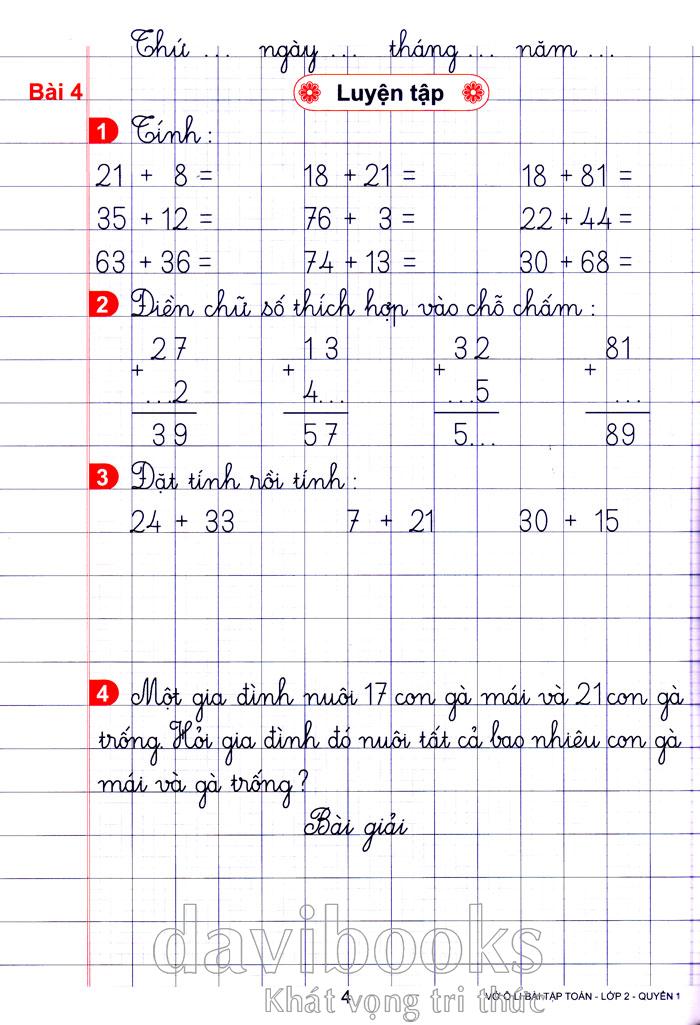 Thứ ... ngày ... tháng ... năm ...
Bài 4 Luyện tập
1 Tính :
21 + 8 = 18 + 21 = 18 + 81 =
35 + 12 = 76 + 3 = 22 + 44 =
63 + 36 = 74 + 13 = 30 + 68 =
2 Điền chữ số thích hợp vào chỗ chấm :
27 13 32 81
+ + + +
...2 4... ...5 ...
39 57 5... 89
3 Đặt tính rồi tính :
24 + 33 7 + 21 30 + 15
4 Một gia đình nuôi 17 con gà mái và 21 con gà
trống. Hỏi gia đình đó nuôi tất cả bao nhiêu con gà
mái và gà trống ?
Bài giải
davibooks
Khát vọng tri thức
4 VỞ Ô LI BÀI TẬP TOÁN - LỚP 2 - QUYỂN 1